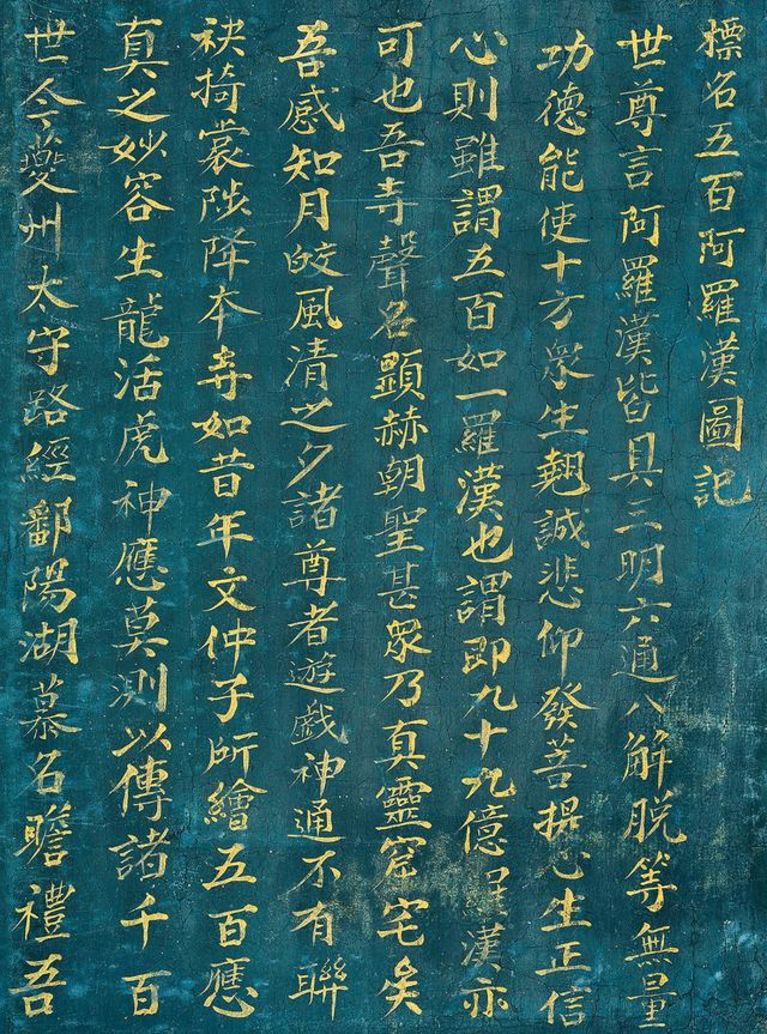 標名五百阿羅漢圖記
世尊言阿羅漢皆具三明六通八解脱等無量
功德能使十方衆生翹誠悲仰發菩提心生正信
心則雖謂五百如一羅漢也謂即九十九億羅漢亦
可也吾寺聲名顯赫朝聖甚衆乃真靈窟宅矣
吾感知月皎風清之夕諸尊者遊戲神通不有聯
袂掎裳陟降本寺如昔年文仲子所繪五百應
真之妙容生龍活虎神應莫測以傳諸千百
世今夔州太守路經鄱陽湖慕名瞻禮吾